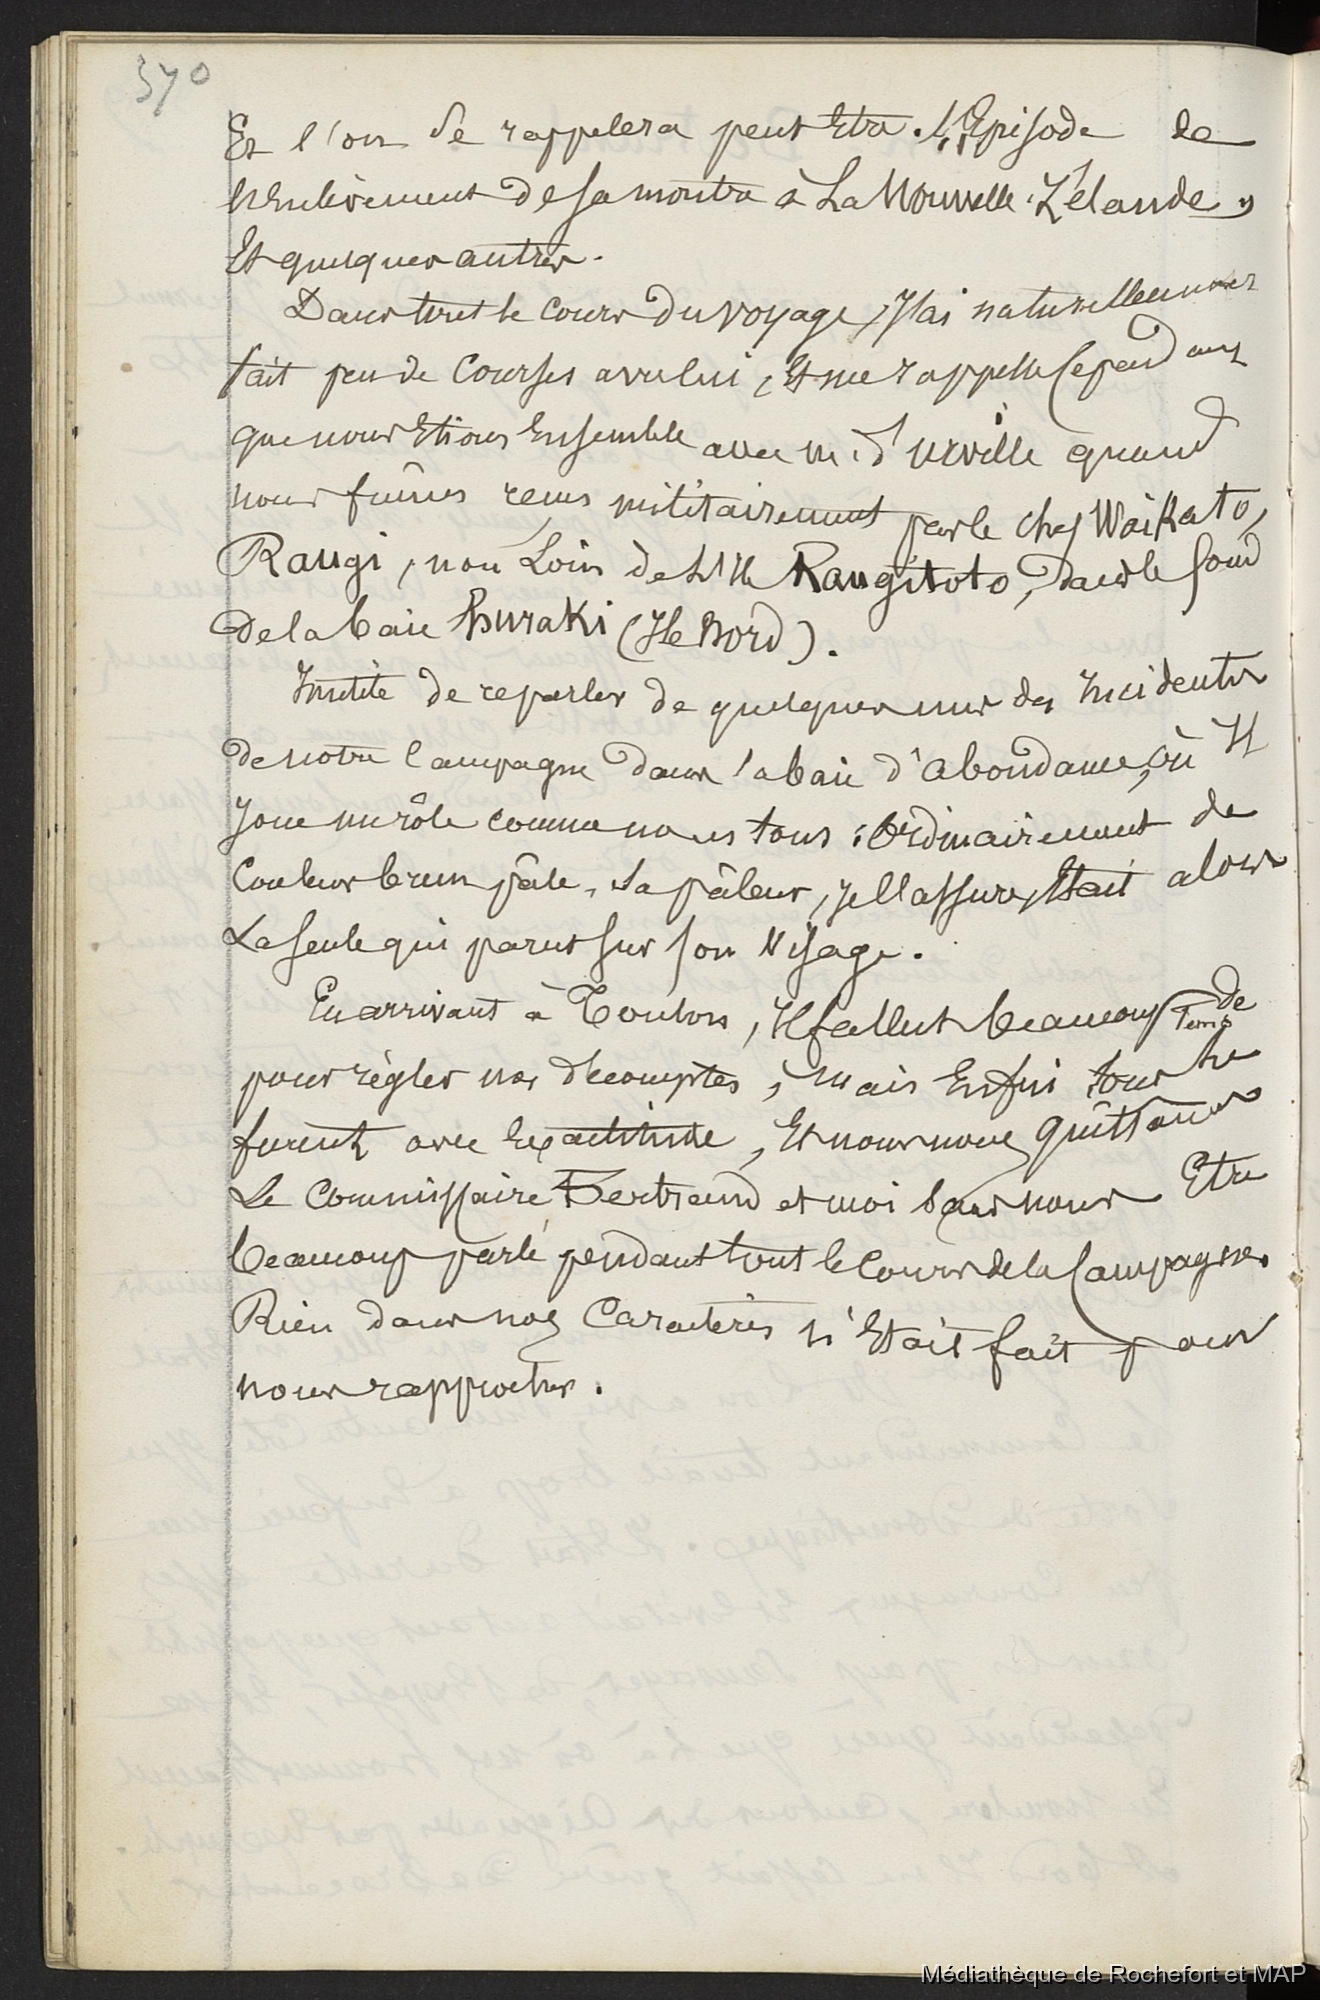 370
Et l'on se rappelera peut Etre l'Episode de
l'Enlèvement de sa montre à La Nouvelle-Zélande,
Et quelques autres.
Dans tout le cours du voyage, J'ai naturellement
fait peu de Courses avec lui, Et me rappelle Cependant
que nous Etions Ensemble avec m. d'urville quand
nous fûmes reçus militairement par le chef Waikato,
Rangi, non Loin de L'Ile Rangitoto, dans le fond
de la baie huraki (Ile Nord).
Inutile de reparler de quelques uns des Incidents
de notre Campagne dans la baie d'abondance, où Il
Joua un rôle comme nous tous : Ordinairement de
Couleur brun pâle, sa pâleur, Je l'assure, Etait alors
La seule qui parut sur son Visage.
En arrivant à Toulon, Il fallut beaucoup de
Temps
pour règler nos décomptes, mais Enfin tous le
furent avec Exactitude, Et nous nous quittâmes
Le Commissaire Bertrand et moi sans nous Etre
beaucoup parlé pendant tout le Cours de la Campagne.
Rien dans nos Caractères n'Etait fait pour
nous rapprocher.
Médiathèque de Rochefort et MAP